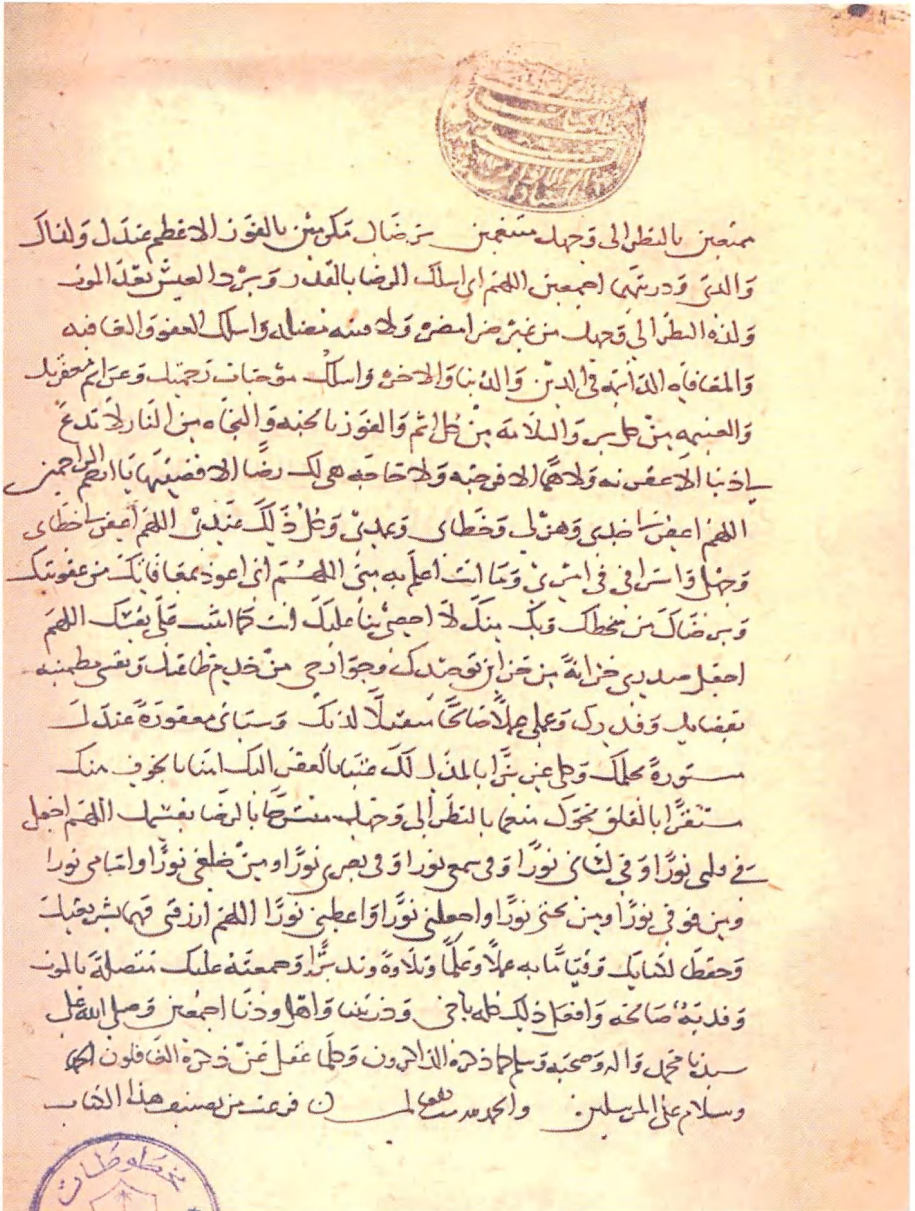 ممتعين بالنظر الى وجهك منعمين برضاك مكرمين بالفوز الاعظم عندك ولقاك
والدى وذريتهما اجمعين اللهم انى اسلك الرضا بالقدر وبرد العيش بعد الموت
ولذه النظر الى وجهك من غير ضرا مضره ولا فتنه مضله واسلك العفو والعافيه
والمعافاه الدائمه فى الدين والدنيا والاخره واسلك موجبات رحمتك وعزائم مغفرتك
والغنيمه من كل بر والسلامة من كل اثم والفوز بالجنه والنجاه من النار لا تدع
لى ذنبا الا غفرته ولا هما الا فرجته ولا حاجه هى لك رضا الا قضيتها يا ارحم الراحمين
اللهم اغفر لى جدى وهزلى وخطاى وعمدى وكل ذلك عندى اللهم اغفر لى خطاى
وجهلى واسرافى فى امرى وما انت اعلم به منى اللهم انى اعوذ بمعافاتك من عقوبتك
وبرضاك من سخطك وبك منك لا احصى ثنا عليك انت كما اثنيت على نفسك اللهم
اجعل صدرى خزانة من خزاين توحيدك وجوارحى من خدم طاعتك ونفسى مطمنيه
بقضايك وقدرك وعملى عملا صالحا متقبلا لديك وسياتى مغفورة عندك
مستورة بحلمك معتزا بالذل لك غنيا بالفقر اليك امنا بالخوف منك
مستقرا بالقلق نحوك منعما بالنظر الى وجهك منشرحا بالرضا بقسمك اللهم اجعل
فى قلبى نورا وفى لسانى نورا وفى سمعى نورا وفى بصرى نورا ومن خلفى نورا وامامى نورا
ومن فوقى نورا ومن تحتى نورا واجعلنى نورا واعطنى نورا اللهم ارزقنى فهما بشريعتك
وحفظا لكتابك وقياما به عملا وعلما وتلاوة وتدبرا وجمعية عليك متصلة بالموت
صالحه وافعل ذلك كله باخى وذريتنا واهل ودنا اجمعين وصلى الله على
سيدنا محمد واله وصحبه وسلم كلما ذكره الذاكرون وكلما غفل عن ذكره الغافلون
وسلام على المرسلين والحمد لله رب العالمين فرغت من تصنيف هذا الكتاب
مخطوطات